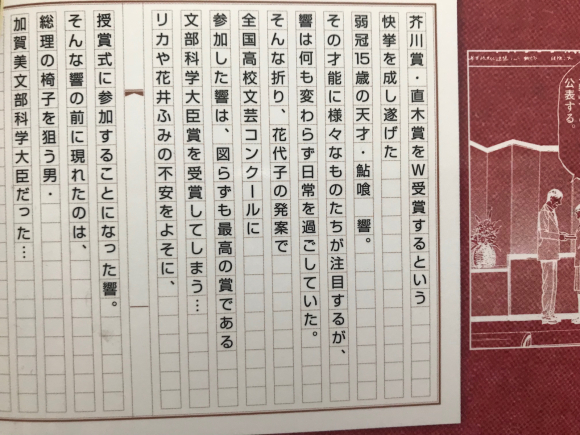 芥川賞・直木賞をW受賞するという
快挙を成し遂げた
弱冠15歳の天才・鮎喰　響。
その才能に様々なものたちが注目するが、
響は何も変わらず日常を過ごしていた。
そんな折り、花代子の発案で
全国高校文芸コンクールに
参加した響は、図らずも最高の賞である
文部科学大臣賞を受賞してしまう…
リカや花井ふみの不安をよそに、
授賞式に参加することになった響。
そんな響の前に現れたのは、
総理の椅子を狙う男・
加賀美文部科学大臣だった…
公表する。